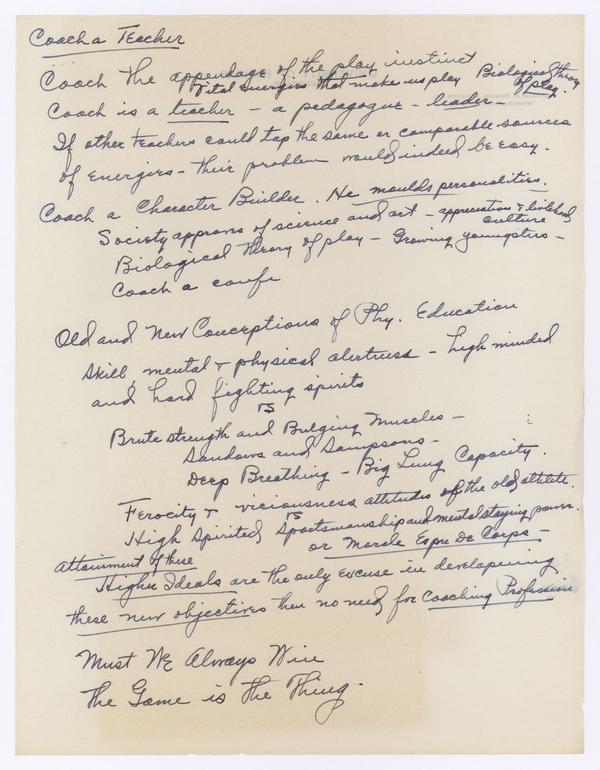 Coach a Teacher
Coach the appendage of the play instinct
Vital energies that make us play Biological theory of play.
Coach is a teacher - a pedagogue - leader -
If other teachers could tap the same or comparable sources
of Energies - their problem would indeed be easy.
Coach a Character Builder. He moulds personalities.
Society approves of science and art - appreciation & livelihood
culture
Biological theory of play - Growing youngsters -
Coach a confi
Old and New Conceptions of Phy. Education
Skill, mental & physical alertness - high minded
and hard fighting spirits
VS
Brute strength and Bulging Muscles -
Sandows and Sampsons -
Deep Breathing - Big Lung Capacity.
Ferocity & viciousness attitudes of the old athlete.
VS
High Spirited Sportsmanship and mental staying power.
or Morale Espre De Corps -
attainment of these
Higher Ideals are the only excuse in developing
these new objectives then no need for Coaching Profession
Must We Always Win
The Game is the Thing.